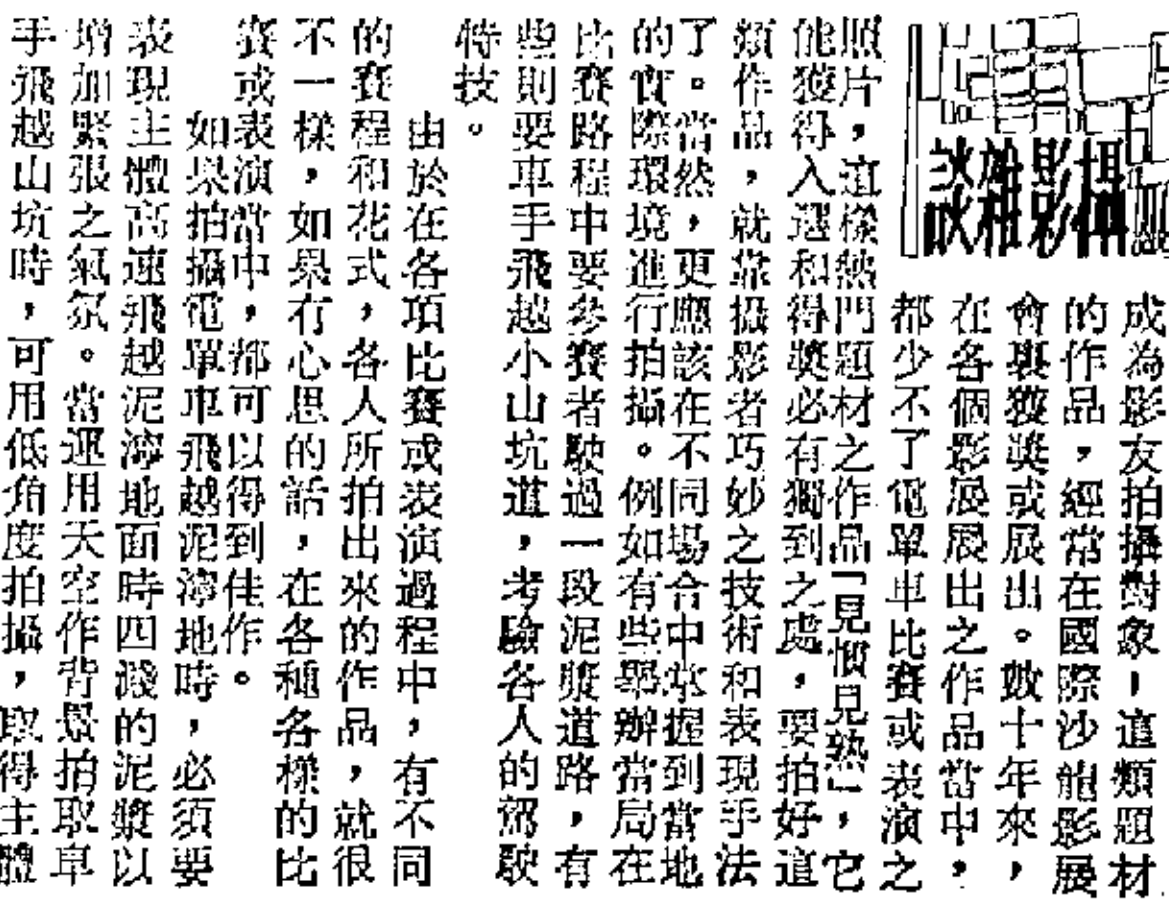 攝影雜談
成為影友拍攝對象，這類題材
的作品，經常在國際沙龍影展
會裏獲獎或展出。數十年來，
在各個影展展出之作品當中，
都少不了電單車比賽或表演之
照片，這樣熱門題材之作品「見慣見熟」，它
能獲得入選和得獎必有獨到之處，要拍好這
類作品，就靠攝影者巧妙之技術和表現手法
了。當然，更應該在不同場合中掌握到當地
的實際環境進行拍攝。例如有些舉辦當局在
比賽路程中要參賽者駛過一段泥漿道路，有
些則要車手飛越小山坑道，考驗各人的駕駛
特技。
由於在各項比賽或表演過程中，有不同
的賽程和花式，各人所拍出來的作品，就很
不一樣，如果有心思的話，在各種各樣的比
賽或表演當中，都可以得到佳作。
如果拍攝電單車飛越泥濘地時，必須要
表現主體高速飛越泥濘地面時四濺的泥漿以
增加緊張之氣氛。當運用天空作背景拍取車
手飛越山坑時，可用低角度拍攝，取得主體